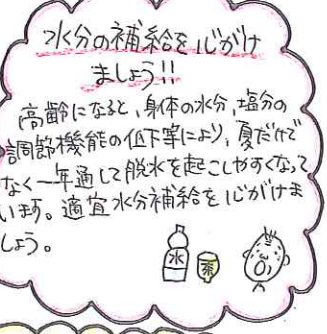 水分の補給を心がけ
ましょう!!
高齢になると、身体の水分、塩分の
調節機能の低下等により、夏だけで
なく一年通して脱水を起こしやすくなって
います。適宜水分補給を心がけま
しょう。
水
茶